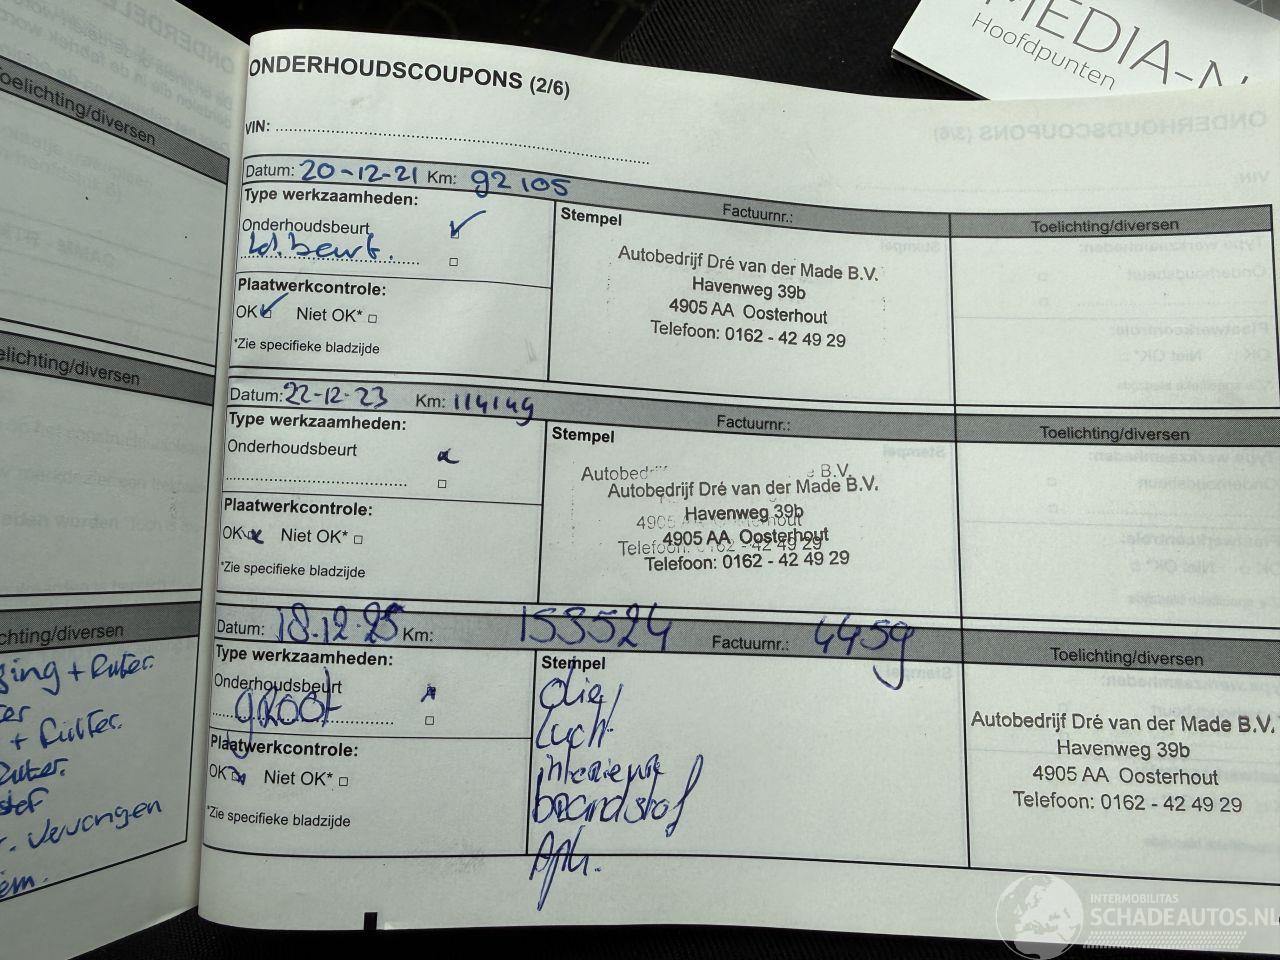 MEDIA-N
Hoofdpunten
Toelichting/diversen
Toelichting/diversen
+ Filter.
+ Filter.
vervangen
ONDERHOUDSCOUPONS (2/6)
VIN:
Datum: 20-12-21 Km: 92105
Factuurnr.:
Toelichting/diversen
Type werkzaamheden:
Onderhoudsbeurt
kl. beurt.
Plaatwerkcontrole:
OK Niet OK*
*Zie specifieke bladzijde
Stempel
Autobedrijf Dré van der Made B.V.
Havenweg 39b
4905 AA Oosterhout
Telefoon: 0162 - 42 49 29
Datum: 22-12-23 Km: 114149
Factuurnr.:
Toelichting/diversen
Type werkzaamheden:
Onderhoudsbeurt
Plaatwerkcontrole:
OK Niet OK*
*Zie specifieke bladzijde
Stempel
Autobedrijf Dré van der Made B.V.
Havenweg 39b
4905 AA Oosterhout
Telefoon: 0162 - 42 49 29
Datum: 18.12.25 Km: 153524 Factuurnr.: 4459
Toelichting/diversen
Type werkzaamheden:
Onderhoudsbeurt
groot
Plaatwerkcontrole:
OK Niet OK*
*Zie specifieke bladzijde
Stempel
olie/
lucht
interieur
brandstof
Apk.
Autobedrijf Dré van der Made B.V.
Havenweg 39b
4905 AA Oosterhout
Telefoon: 0162 - 42 49 29
INTERMOBILITAS
SCHADEAUTOS.NL